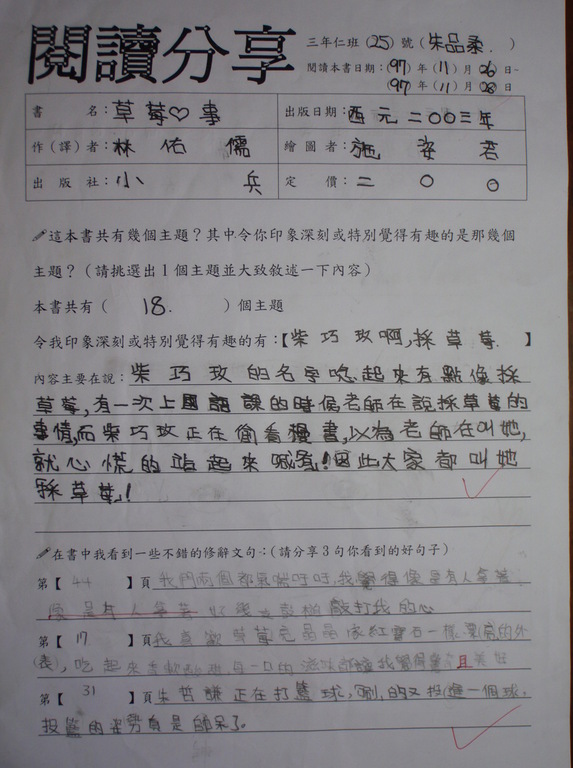 閱讀分享
三年仁班(25)號(朱品柔.)
閱讀本書日期:(97)年(11)月(06)日-
(97)年(11)月(08)日
書名:草莓♡事 出版日期:西元二〇〇三年
作(譯)者:林佑儒 繪圖者:施姿君
出版社:小兵 定價:二〇〇
這本書共有幾個主題?其中令你印象深刻或特別覺得有趣的是那幾個
主題?(請挑選出1個主題並大致敘述一下內容)
本書共有(18.)個主題
令我印象深刻或特別覺得有趣的有:【柴巧玫啊,採草莓.】
內容主要在說:柴巧玫的名字唸起來有點像採
草莓,有一次上國語課的時候老師在說採草莓的
事情,而柴巧玫正在偷看漫畫,以為老師在叫她,
就心慌的站起來喊有!因此大家都叫她
採草莓!
在書中我看到一些不錯的修辭文句:(請分享3句你看到的好句子)
第【44】頁我們兩個都氣喘吁吁,我覺得像是有人拿著
敲打我的心
第【17】頁我喜歡草莓亮晶晶像紅寶石一樣漂亮的外
(表),吃起來
第【31】頁朱哲謙正在打籃球,唰的又投進一個球,
投籃的姿勢真是帥呆了.